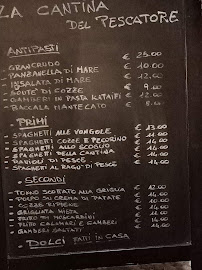 LA CANTINA
DEL PESCATORE
ANTIPASTI
- GRANCRUDO € 25.00
- PANZANELLA DI MARE € 10.00
- INSALATA DI MARE € 12.00
- SOUTE' DI COZZE € 9.00
- GAMBERI IN PASTA KATAIFI € 12.00
- BACCALÀ MANTECATO € 9.00
PRIMI
- SPAGHETTI ALLE VONGOLE € 13.00
- SPAGHETTI COZZE E PECORINO € 11.00
- SPAGHETTI ALLO SCOGLIO € 14.00
- SPAGHETTI DELLA CANTINA €
- RAVIOLI DI PESCE € 14.00
- SPAGHETTI AL RAGÙ DI PESCE
SECONDI
- TONNO SCOTTATO ALLA GRIGLIA €
- POLPO SU CREMA DI PATATE € 14.00
- COZZE RIPIENE €
- GRIGLIATA MISTA €
- FRITTO MOSCARDINI €
- FRITTO CALAMARI E GAMBERI €
- GAMBERI SALTATI €
- DOLCI FATTI IN CASA